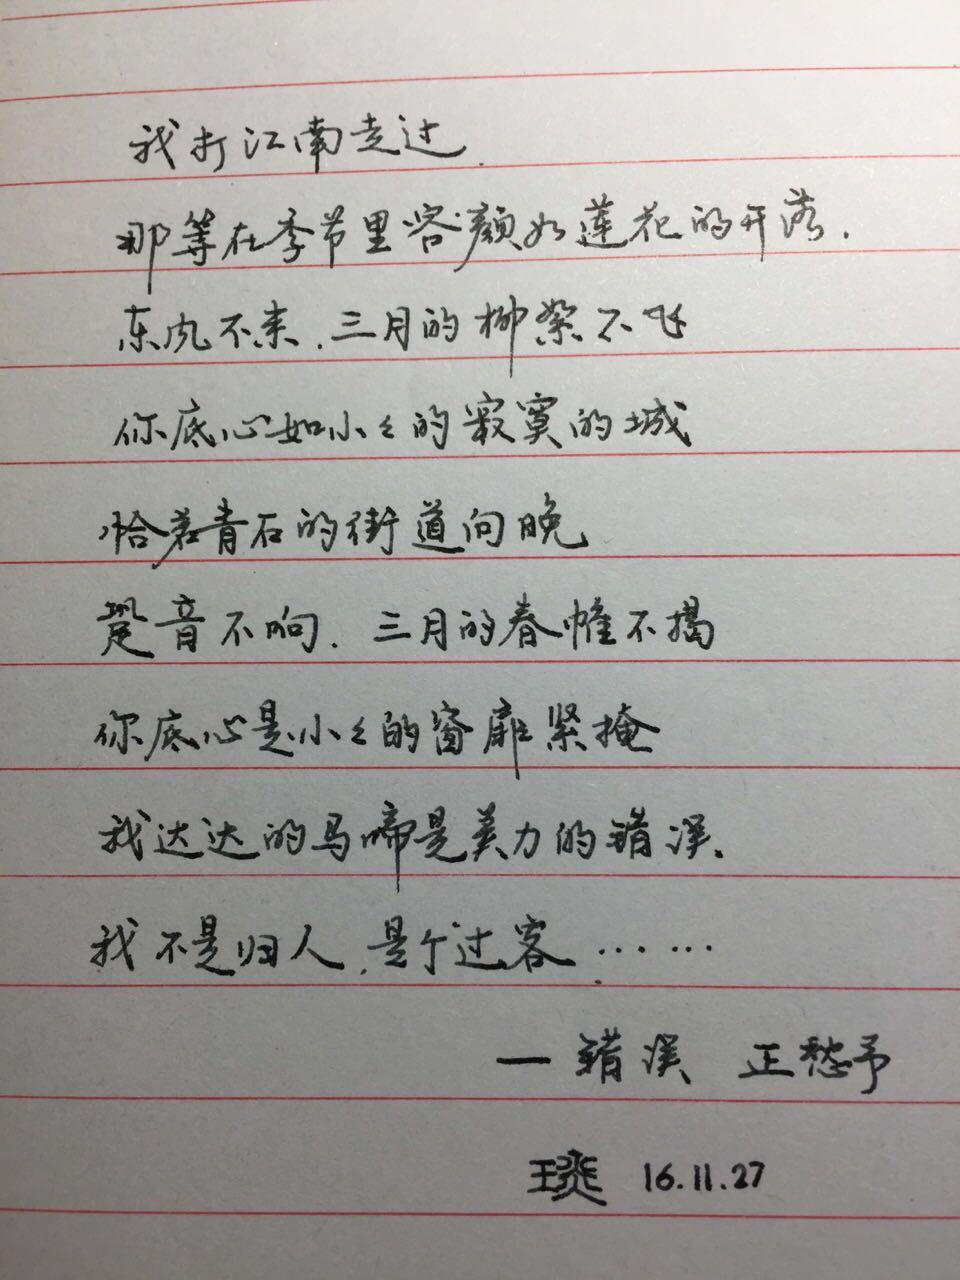 我打江南走过.
那等在季节里容颜如莲花的开落.
东风不来.三月的柳絮不飞
你底心如小々的寂寞的城
恰若青石的街道向晚
跫音不响.三月的春帷不揭
你底心是小々的窗扉紧掩
我达达的马啼是美力的错误.
我不是归人.是个过客......
一错误 正愁予
16.11.27